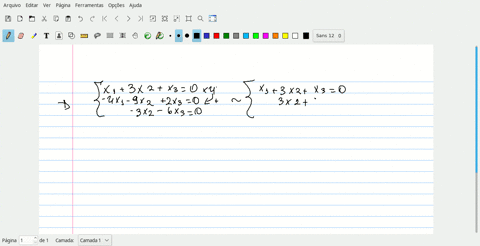 Arquivo Editar Ver Página Ferramentas Opções Ajuda
Sans 12
x₁ + 3x2 + x3 = 0 x4
-4x1 - 9x2 + 2x3 = 0 ↙+
-3x2 - 6x3 = 0
~
x1 + 3x2 + x3 = 0
3x2 +
Página 1 de 1 Camada: Camada 1